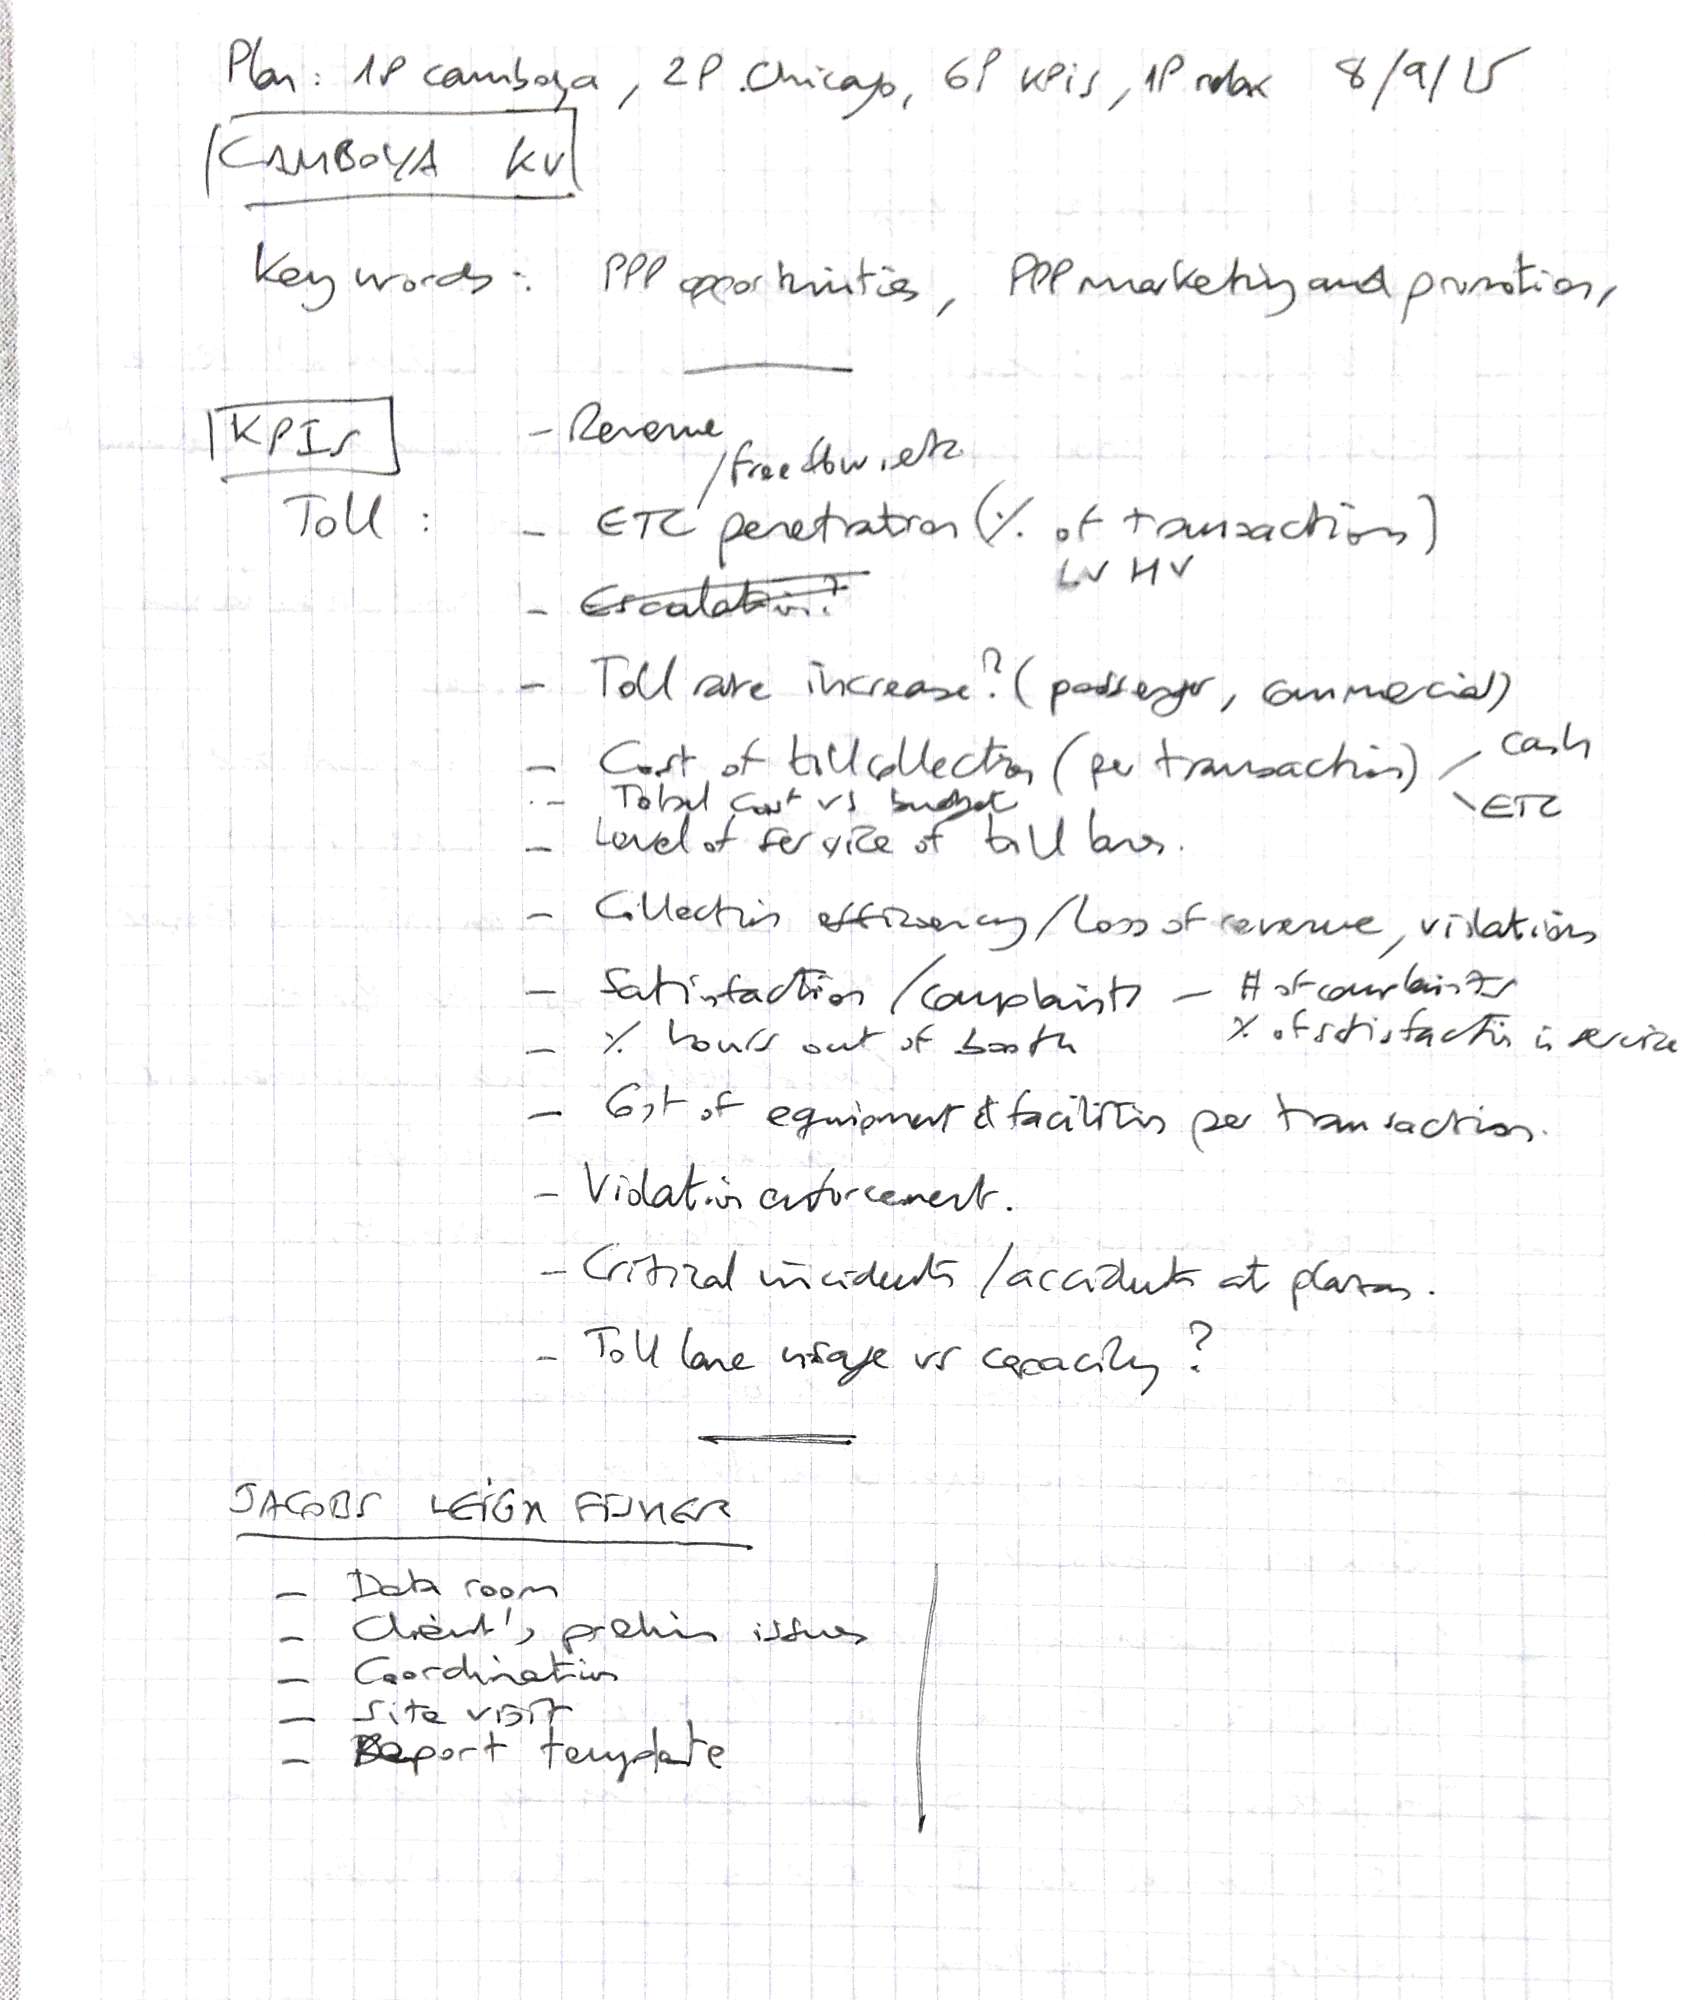 Plan: 1P camboya, 2P Chicago, 6P KPIs, 1P relax 8/9/15
CAMBOYA KV
Key words: PPP opportunities, PPP marketing and promotion,
KPIs
- Revenue
/free flow, etc
Toll: - ETC penetration (% of transactions)
LV HV
- Escalation?
- Toll rate increase? (passenger, commercial)
- Cost of toll collection (per transaction) / cash
\ ETC
- Total cost vs budget
- Level of service of toll lanes.
- Collection efficiency / Loss of revenue, violations
- Satisfaction / complaints - # of complaints
% of satisfaction in service
- % hours out of booth
- Cost of equipment & facilities per transaction.
- Violation enforcement.
- Critical incidents / accidents at plazas.
- Toll lane usage vs capacity?
JACOBS LEIGH FISHER
- Data room
- Client's prelim issues
- Coordination
- Site visit
- Report template